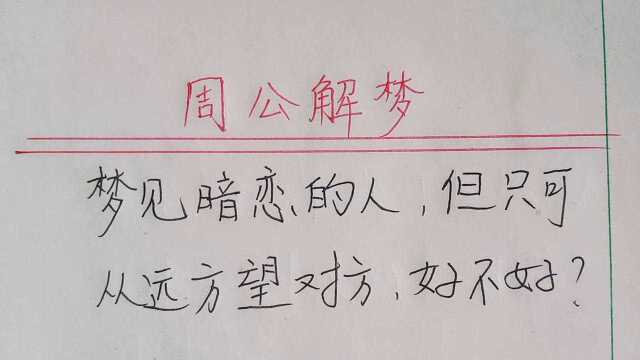 周公解梦
梦见暗恋的人,但只可
从远方望对方,好不好?